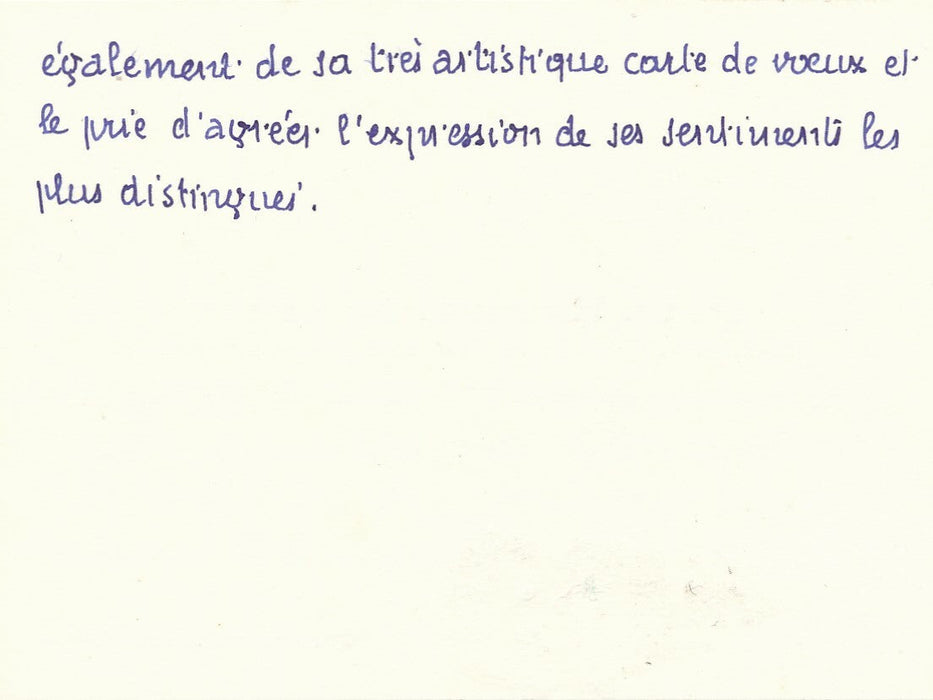 également de sa très artistique carte de vœux et
le prie d'agréer l'expression de ses sentiments les
plus distingués.